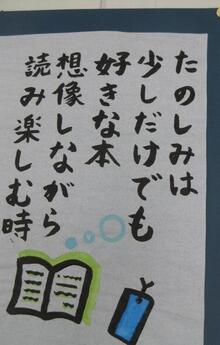 たのしみは
少しだけでも
好きな本
想像しながら
読み楽しむ時